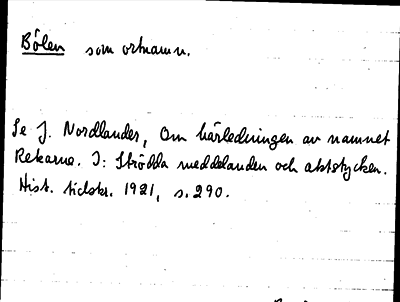 Bölen som ortnamn.
Se J. Nordlander, Om härledningen av namnet
Rekarne. I: Strödda meddelanden och aktstycken.
Hist. tidskr. 1921, s. 290.